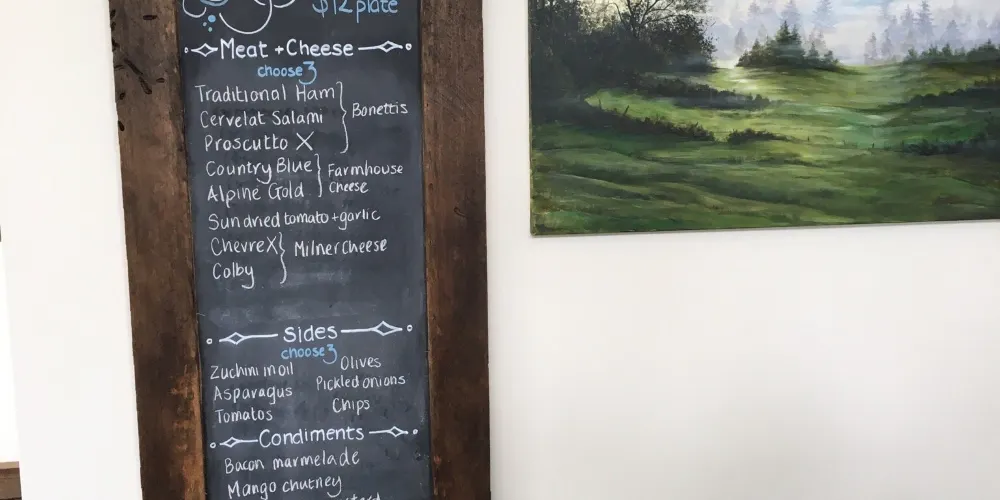 $12 plate
Meat + Cheese
choose 3
Traditional Ham
Cervelat Salami
Proscutto X
Bonettis
Country Blue
Alpine Gold
Farmhouse
Cheese
Sundried tomato + garlic
Chevre X
Colby
Milner Cheese
Sides
choose 3
Zuchini in oil
Asparagus
Tomatos
Olives
Pickled onions
Chips
Condiments
Bacon marmelade
Mango chutney